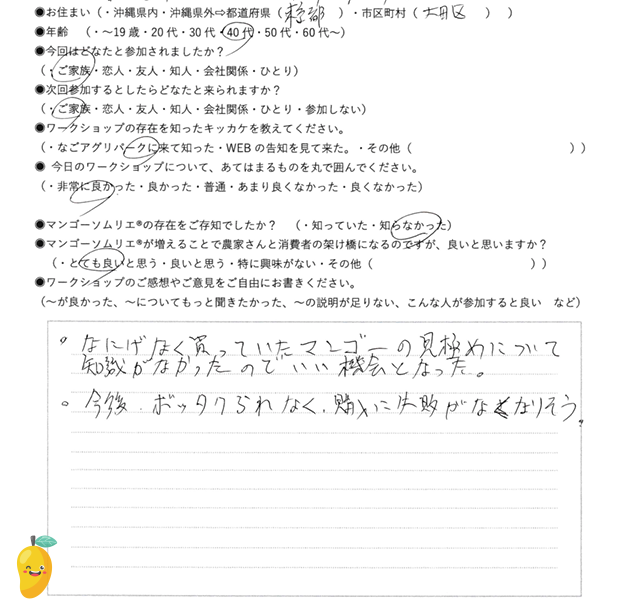 ●お住まい（・沖縄県内・沖縄県外⇨都道府県（ 京都 ）・市区町村（ ）　）
●年齢　（・～19歳・20代・30代・40代・50代・60代～）
●今回はどなたと参加されましたか？
（・ご家族・恋人・友人・知人・会社関係・ひとり）
●次回参加するとしたらどなたと来られますか？
（・ご家族・恋人・友人・知人・会社関係・ひとり・参加しない）
●ワークショップの存在を知ったキッカケを教えてください。
（・なごアグリパークに来て知った・WEBの告知を見て来た。・その他（　　　　　　　　　　））
● 今日のワークショップについて、あてはまるものを丸で囲んでください。
（・非常に良かった・良かった・普通・あまり良くなかった・良くなかった）
●マンゴーソムリエ®の存在をご存知でしたか？　（・知っていた・知らなかった）
●マンゴーソムリエ®が増えることで農家さんと消費者の架け橋になるのですが、良いと思いますか？
（・とても良いと思う・良いと思う・特に興味がない・その他（　　　　　　　　　　））
●ワークショップのご感想やご意見をご自由にお書きください。
（～が良かった、～についてもっと聞きたかった、～の説明が足りない、こんな人が参加すると良い　など）
。なにげなく買っていたマンゴーの見極めについて
知識がなかったのでいい機会となった。
。今後、ボッタクられなく、購入に失敗がなくなりそう。